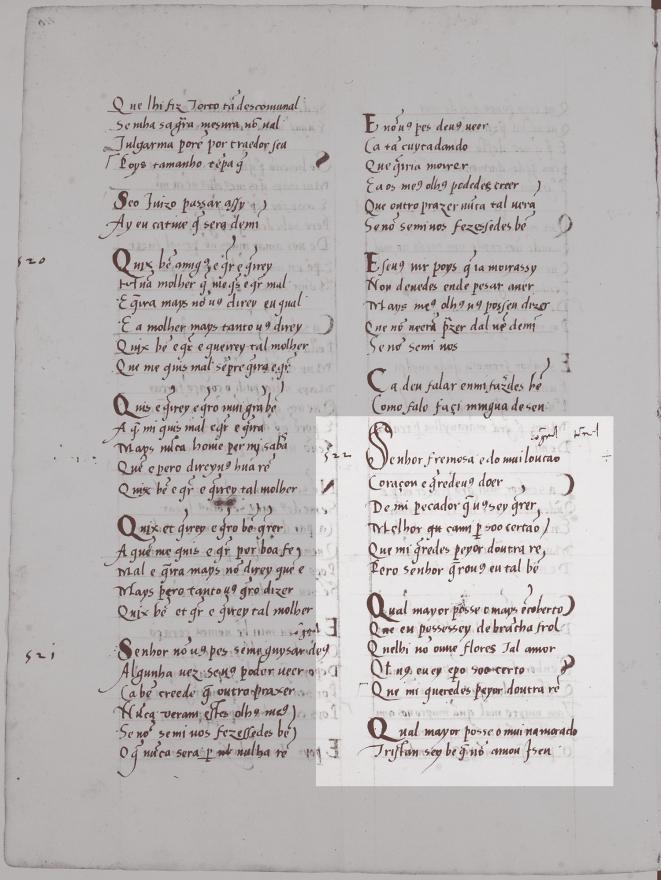 Que lhi fiz Torto tã descomunal
Se mha sa gr̃a mesura nõ ual
Julgarma porẽ por traedor sea
Poys tamanho
Seo Juizo passar assy
Ay eu catiue q̃ sera demi
520
Quix bẽ amig9 e qr̃ e q̃rey
molher q̃ me q̃s e qr̃ mal
E q̃ira mays nõ u9 direy eu qual
E a molher mays tanto u9 direy
Quix bẽ e qr̃ e queirey tal molher
Que me quis mal sẽpre q̃ira e qr̃
Quis e q̃irey e qr̃o mui grã bẽ
A q̃ mi quis mal e qr̃ e q̃ira
Mays nũca home per mi saba
Que e pero direyu9 hua rẽ
Quix bẽ e qr̃ e q̃irey tal molher
Quix et q̃irey e qr̃o bẽ q̃rer
A quẽ me quis e qr̃ por boa fe
Mal e q̃ira mays nõ direy que e
Mays pero tanto u9 qr̃o dizer
Quix bẽ et qr̃ e q̃irey tal molher
521
Senhor nõ u9 pes se me guysar de9
Algunha uez se u9 poder ueer
Ca bẽ creede q̃ outro prazer
Nũca ueram estes olh9 me9
Se nõ se mi uos fezessedes bẽ
O q̃ nũca sera p̱ nulha rẽ
E nõ u9 pes de u9 ueer
Ca tã cuytadando
Que q̃iria morrer
E a os me9 olh9 podedes creer
Que outro prazer nũca tal uera
Se nõ se mi uos fezessedes bẽ
E se u9 uir poys q̃ ia moirassy
Non deuedes ende pesar auer
Mays me9 olh9 u9 posseu dizer
Que nõ ueerã p̃zer dal nẽ demi
Se nõ se mi uos
Ca deu falar en mi fazerdes bẽ
Como falo faça mingua de sen
522
Senhor fremosa e do mui loução
Coraçon e q̃redeu9 doer
De mi pecador q̃ u9 sey q̃rer
Melhor qua mi p̱ soo certão
Que mi q̃redes peyor doutra rẽ
Pero senhor q̃rou9 eu tal bẽ
Qual mayor posse o mays ẽcoberto
Que eu possessey de brãcha frol
Que lhi nõ ouue flores Tal amor
Qual u9 eu ey e pero soo certo
Que mi queredes peyor doutra rẽ
Qual mayor posse o mui namorado
Tristan sey bẽ q̃ nõ amou Iseu